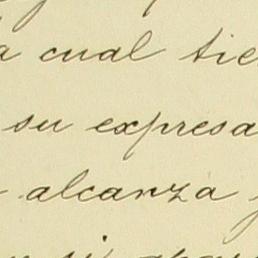 a cual tie
su expresa
alcanza